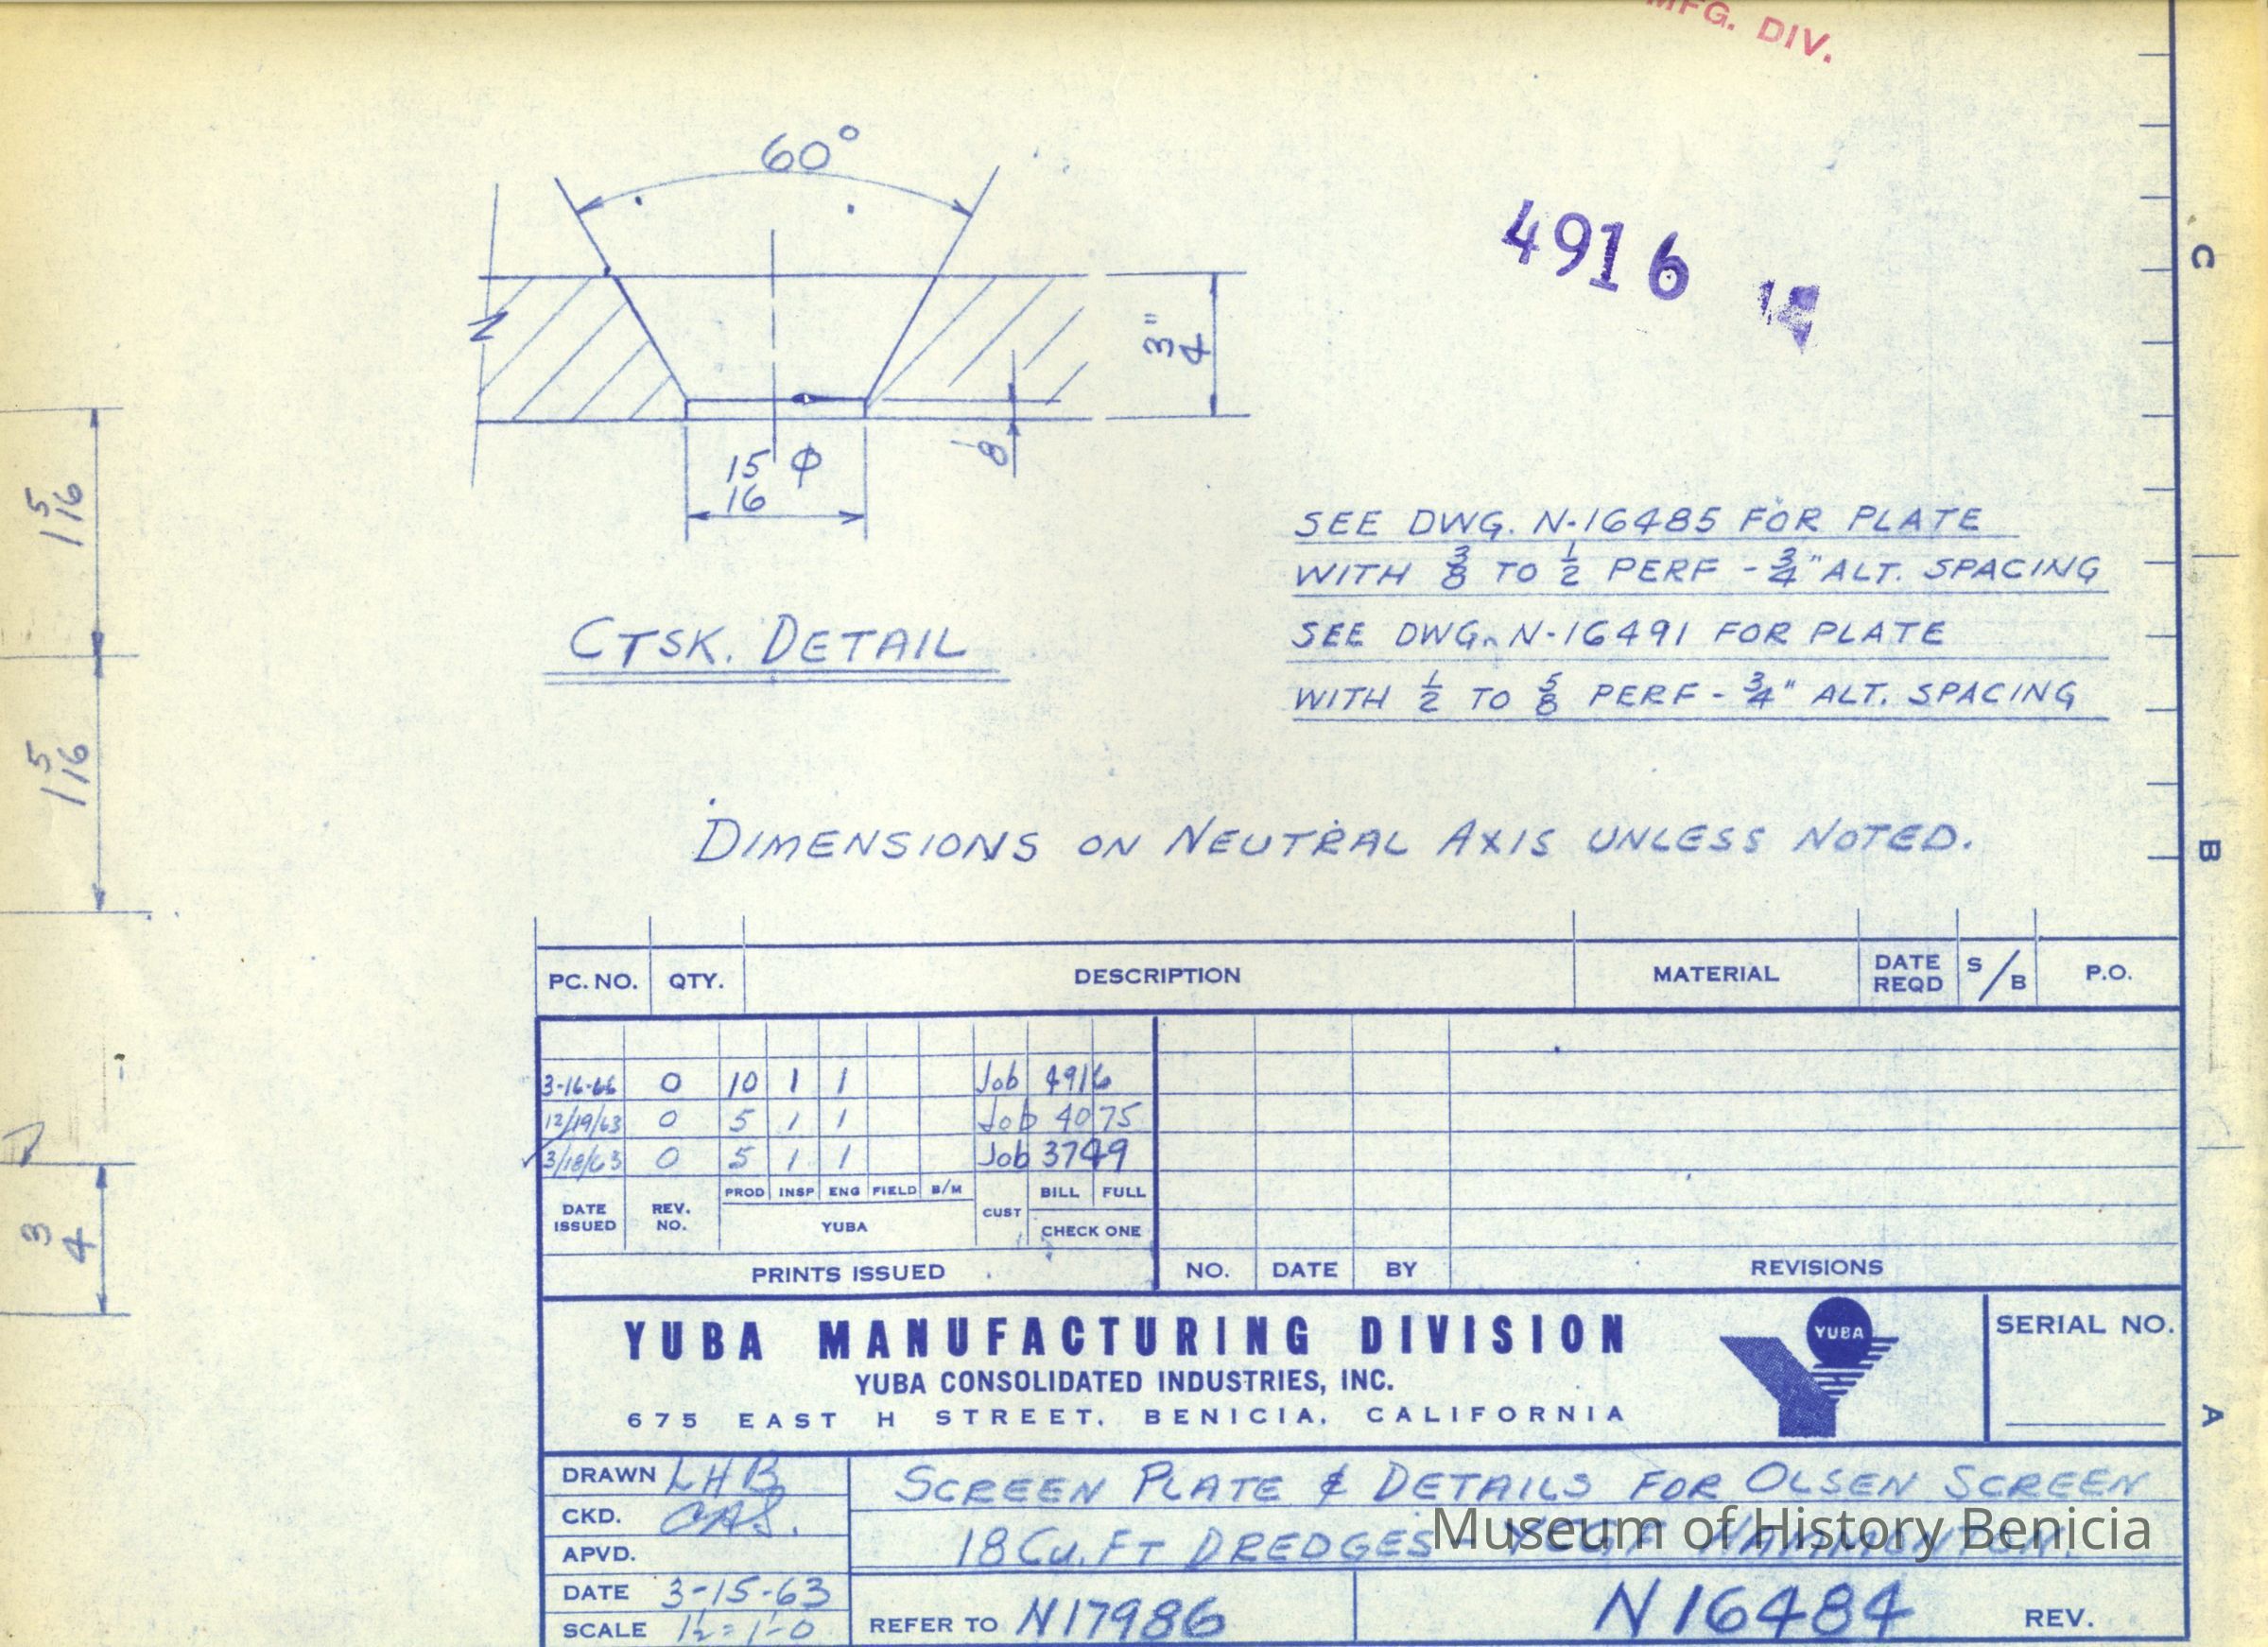 MFG. DIV.
60°
4916
3"
4
1
8
15 φ
16
1 5
16
1 5
16
3
4
CTSK. DETAIL
SEE DWG. N-16485 FOR PLATE
WITH 3/8 TO 1/2 PERF - 3/4" ALT. SPACING
SEE DWG. N-16491 FOR PLATE
WITH 1/2 TO 5/8 PERF - 3/4" ALT. SPACING
DIMENSIONS ON NEUTRAL AXIS UNLESS NOTED.
PC. NO. QTY. DESCRIPTION MATERIAL DATE REQD S/B P.O.
3-16-66 0 10 1 1 Job 4916
12/19/63 0 5 1 1 Job 4075
3/18/63 0 5 1 1 Job 3749
DATE ISSUED REV. NO. PROD INSP ENG FIELD B/M YUBA CUST BILL FULL CHECK ONE
PRINTS ISSUED NO. DATE BY REVISIONS
YUBA MANUFACTURING DIVISION
YUBA CONSOLIDATED INDUSTRIES, INC.
675 EAST H STREET, BENICIA, CALIFORNIA
YUBA
SERIAL NO.
DRAWN LHB
CKD. CAS.
APVD.
DATE 3-15-63
SCALE 1½=1-0
SCREEN PLATE & DETAILS FOR OLSEN SCREEN
18 CU. FT DREDGES - YCGF HAMMONTON.
Museum of History Benicia
REFER TO N17986
N16484 REV.